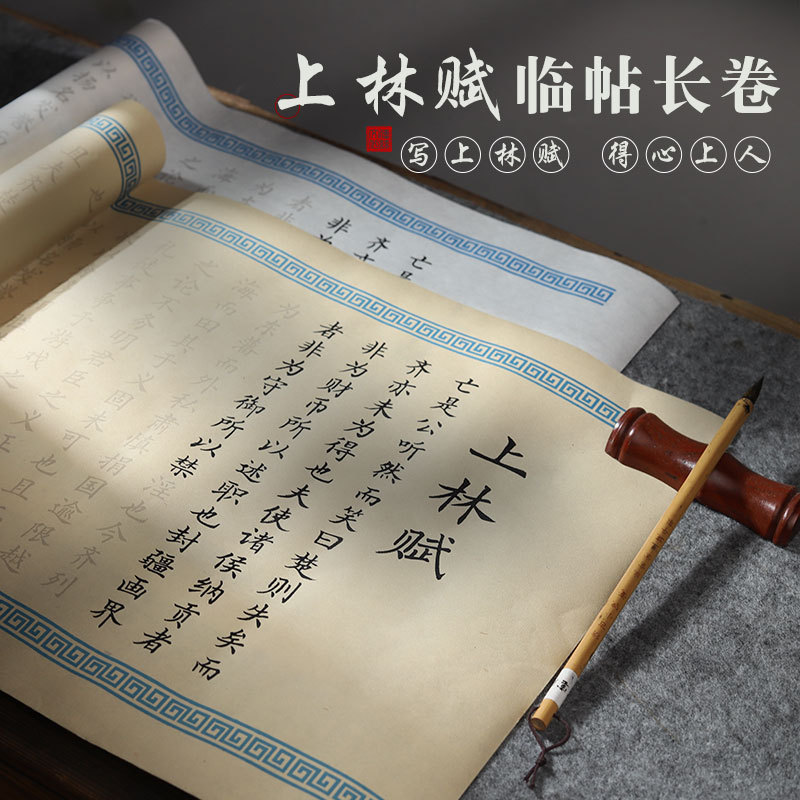 上林赋临帖长卷
写上林赋 得心上人
上林赋
亡是公听然而笑曰楚则失矣而
齐亦未为得也夫使诸侯纳贡者
非为财币所以述职也封疆画界
者非为守御所以禁淫也今齐列
为东藩而外私肃慎捐国逾限越
海而田其于义固未可也且
之论不务明君臣之义正
亡是
齐亦
非为